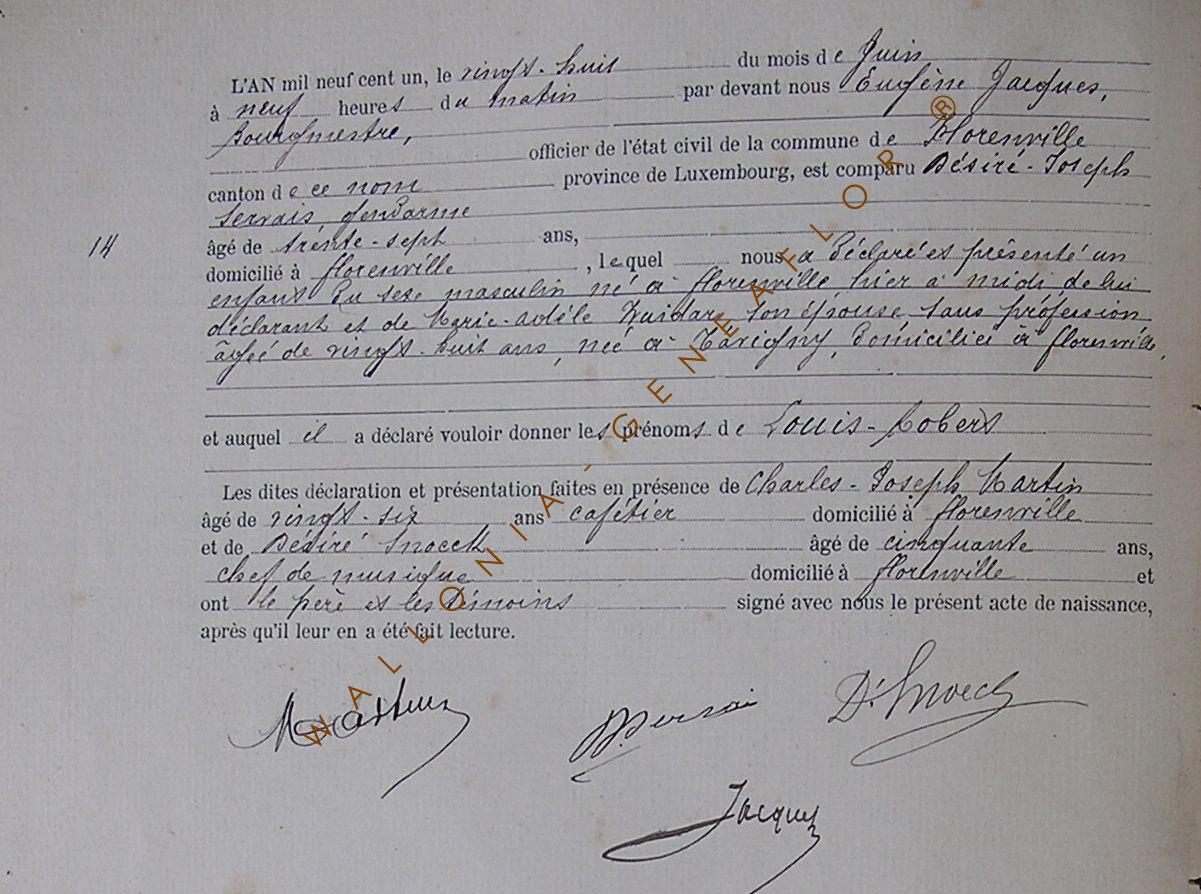 L'AN mil neuf cent un, le vingt-huit du mois de Juin
à neuf heures du matin par devant nous Eugène Jacques,
Bourgmestre,
officier de l'état civil de la commune de Florenville
canton de ce nom province de Luxembourg, est comparu Désiré-Joseph
Servais, gendarme
14
âgé de trente-sept ans,
domicilié à florenville, lequel nous a déclaré et présenté un
enfant du sexe masculin né à florenville hier à midi de lui
déclarant et de Marie-Adèle Zuidar, son épouse sans profession
âgée de vingt-huit ans, née à Tavigny, domiciliée à florenville,
et auquel il a déclaré vouloir donner les prénoms de Louis-Robert
Les dites déclaration et présentation faites en présence de Charles-Joseph Martin
âgé de vingt-six ans cafétier domicilié à florenville
et de Désiré Snoeck âgé de cinquante ans,
chef de musique domicilié à florenville et
ont le père et les témoins signé avec nous le présent acte de naissance,
après qu'il leur en a été fait lecture.
Martin Servais D. Snoeck
Jacques
WALLONIA-GENEAFLOR ®